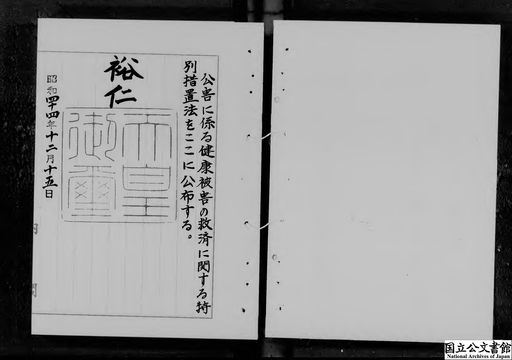 公害に係る健康被害の救済に関する特
別措置法をここに公布する。
裕仁
天皇
御璽
昭和四十四年十二月十五日
国立公文書館
National Archives of Japan